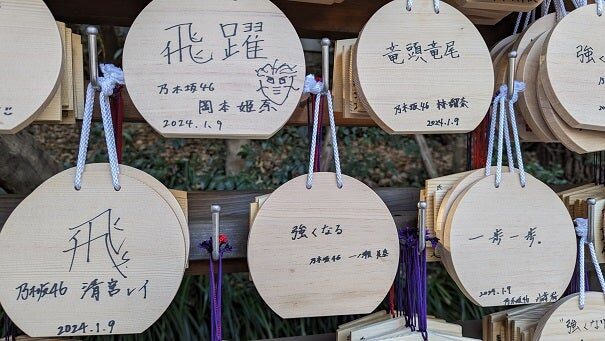 飛躍
乃木坂46
岡本姫奈
2024.1.9
竜頭竜尾
乃木坂46 林瑠奈
2024.1.9
強く
飛
乃木坂46 清宮レイ
2024.1.9
強くなる
乃木坂46 一ノ瀬 美空
一歩一歩。
2024.1.9
乃木坂46
"強くなり